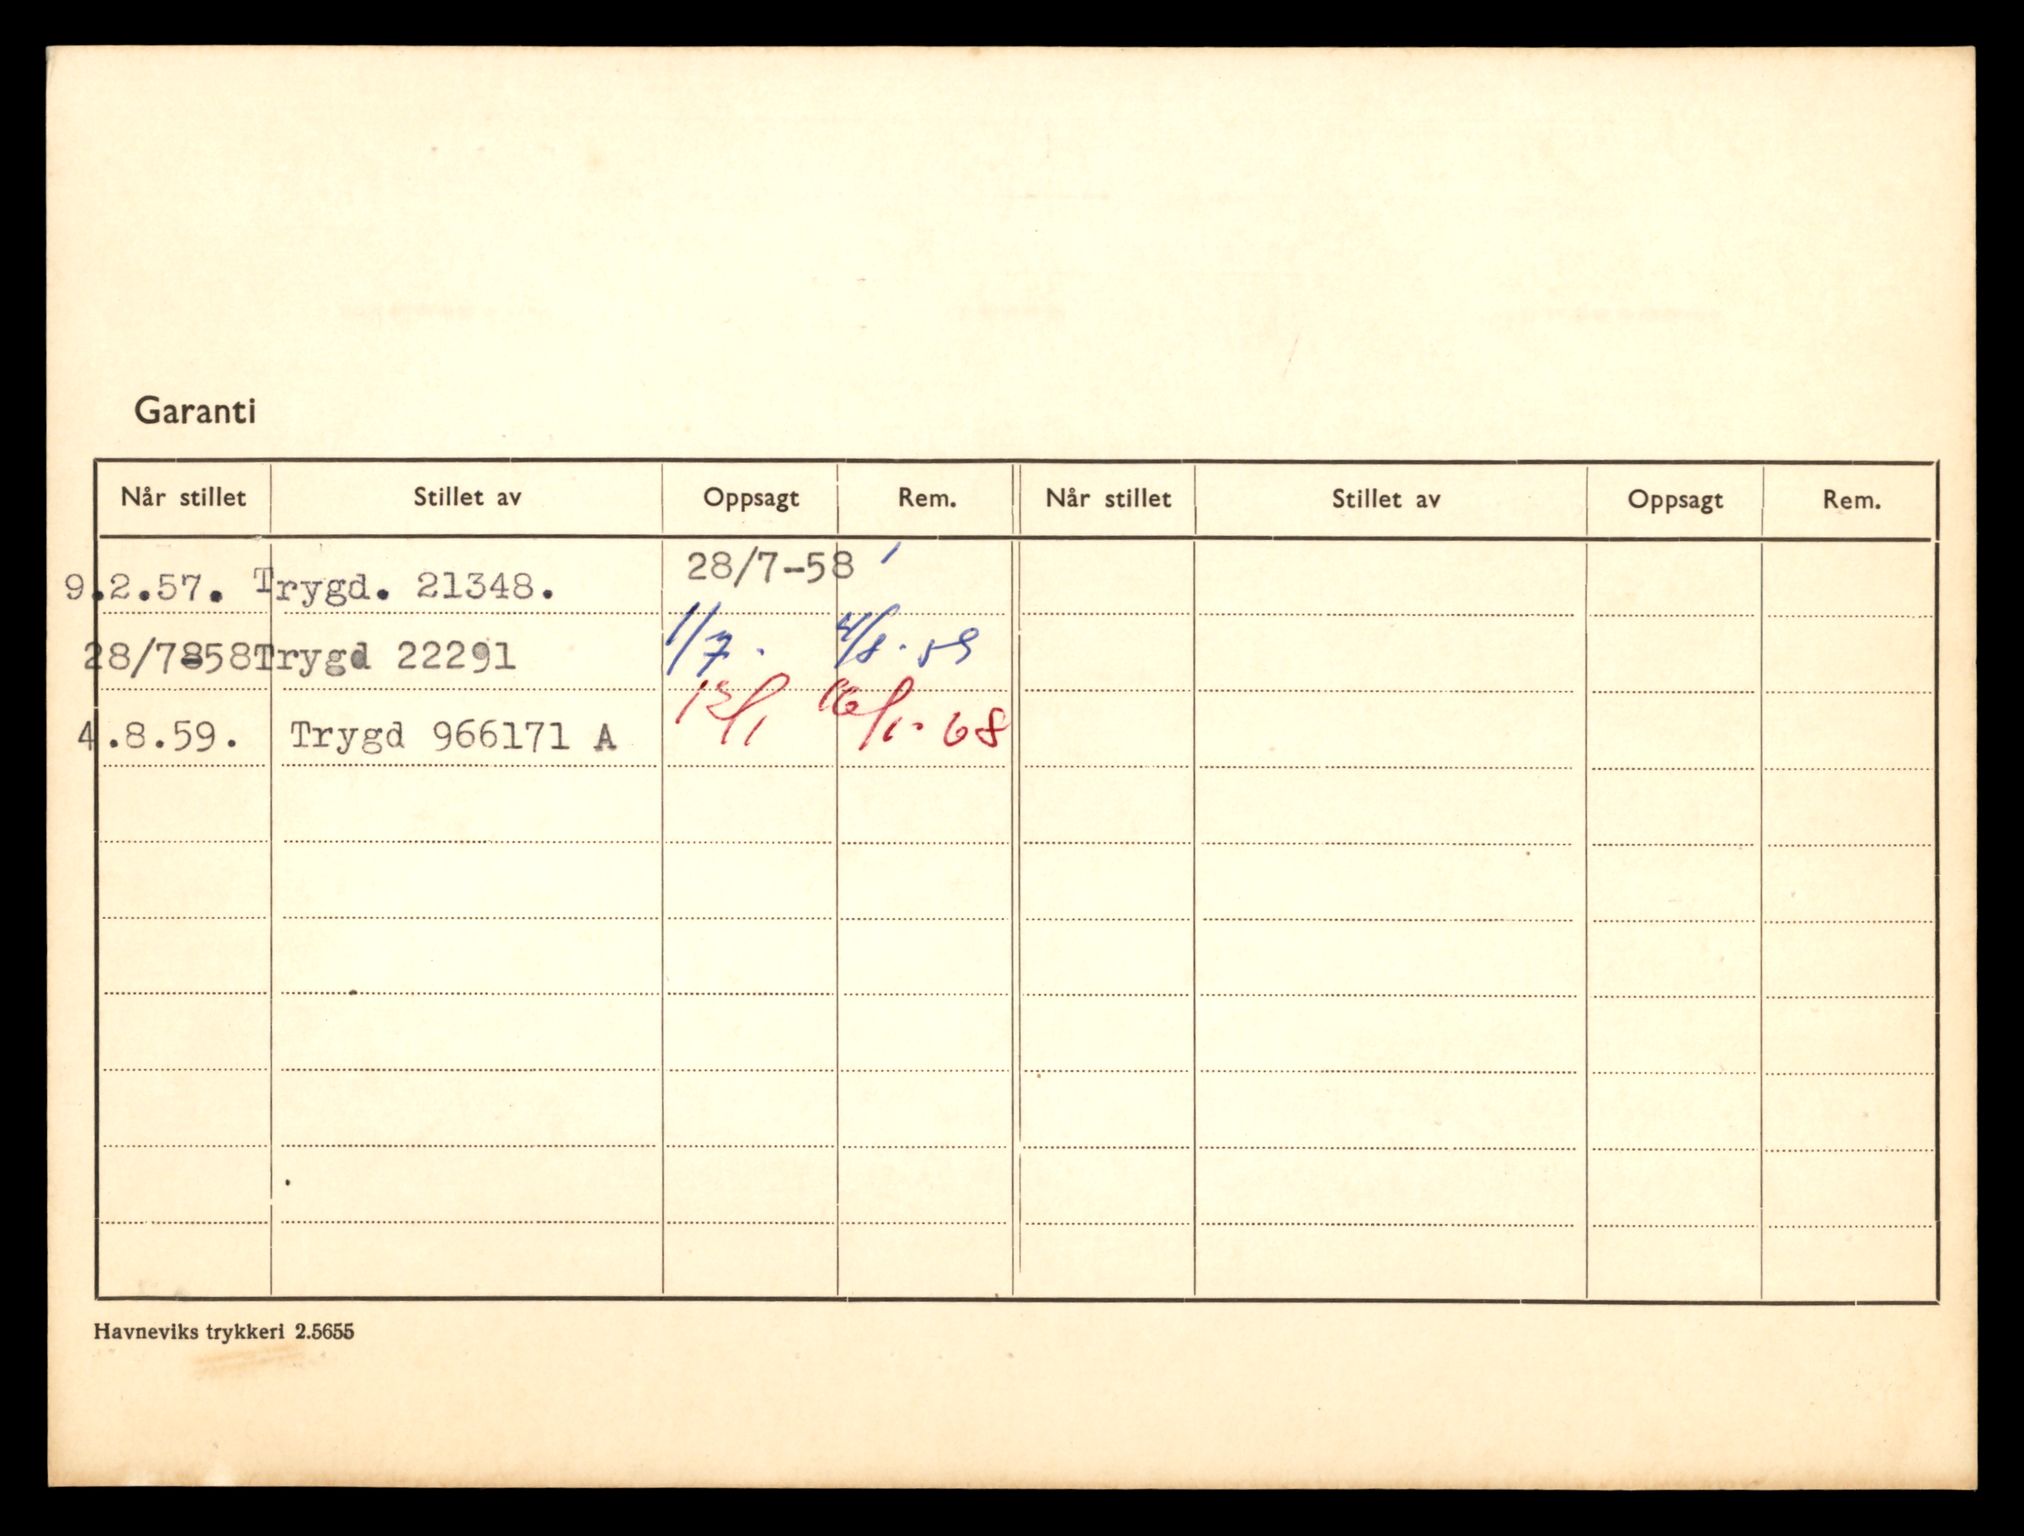 Garanti
Når stillet Stillet av Oppsagt Rem. Når stillet Stillet av Oppsagt Rem.
9.2.57. Trygd. 21348. 28/7-58
28/7-58 Trygd 22291 1/7. 4/8.59
4.8.59. Trygd 966171 A 12/1 16/1.68
Havneviks trykkeri 2.5655